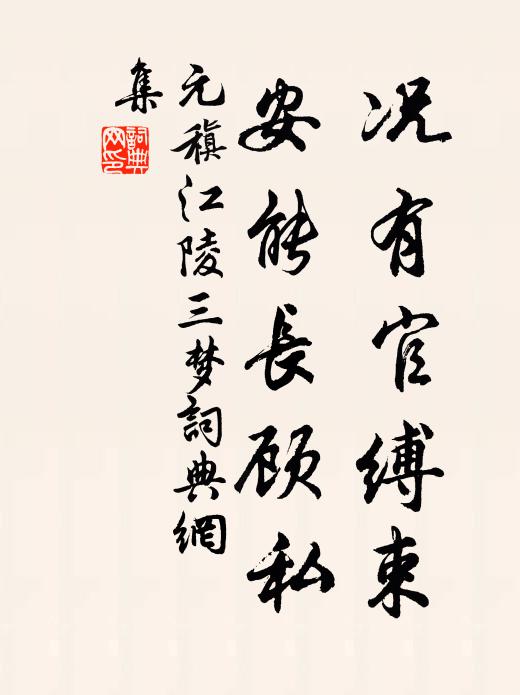 况有官缚束
安能长顾私
元稹江陵三梦词典網
集
詞典
网印